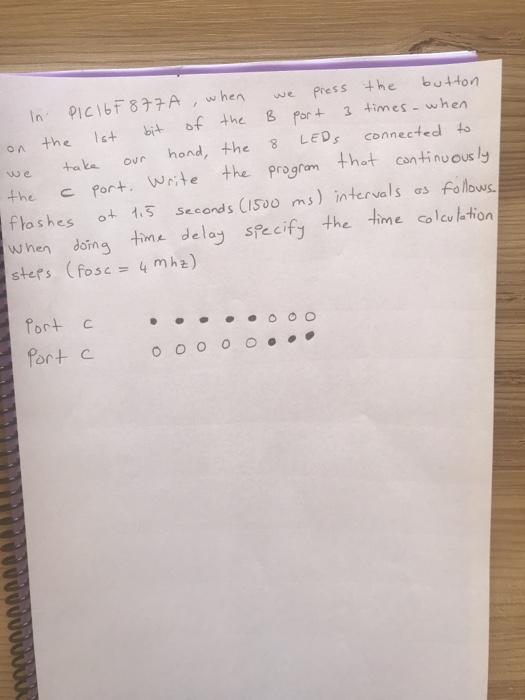 In PIC16F877A, when we press the button
on the 1st bit of the B port 3 times - when
we take our hand, the 8 LEDs connected to
the C port. Write the program that continuously
flashes at 1,5 seconds (1500 ms) intervals as follows.
When doing time delay specify the time calculation
steps (fosc = 4 mhz)
Port C ● ● ● ● ● ○ ○ ○
Port C ○ ○ ○ ○ ○ ● ● ●